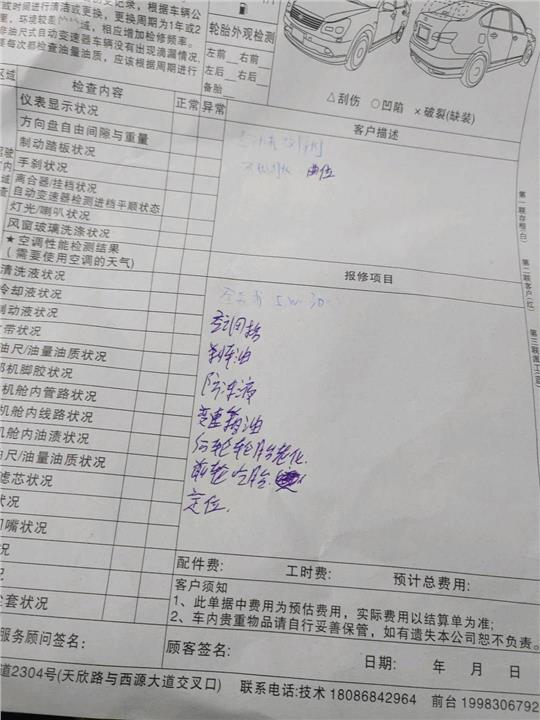 历史记录，根据车辆公
或时间进行清洁或更换，更换周期为1年或2
里，环境较差的区域，相应增加检修频率。
非油尺式自动变速器车辆没有出现滴漏情况,
要每次都检查油量油质，应该根据周期进行
轮胎外观检测
左前__右前
左后__右后
备胎__
△刮伤 ○凹陷 ×破裂(缺装)
区域 检查内容 正常 异常
客户描述
仪表显示状况
方向盘自由间隙与重量
制动踏板状况
手刹状况
离合器/挂档状况
自动变速器检测进档平顺状态
灯光/喇叭状况
风窗玻璃洗涤状况
★空调性能检测结果
(需要使用空调的天气)
清洗液状况
冷却液状况
制动液状况
皮带状况
油尺/油量油质状况
机脚胶状况
机舱内管路状况
机舱内线路状况
机舱内油渍状况
油尺/油量油质状况
滤芯状况
状况
嘴状况
况
套状况
报修项目
5W-30
空调格
刹车油
防冻液
变速箱油
后轮轮胎老化.
前轮吃胎
定位.
第一联存根(白)
第二联客户(红)
配件费: 工时费: 预计总费用:
客户须知
1、此单据中费用为预估费用，实际费用以结算单为准;
2、车内贵重物品请自行妥善保管，如有遗失本公司恕不负责。
服务顾问签名: 顾客签名:
日期: 年 月 日
道2304号(天欣路与西源大道交叉口) 联系电话:技术 18086842964 前台 1998306792